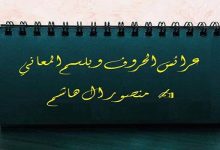 عرائس الحروف وبلسم المعاني
منصور ال هاشم